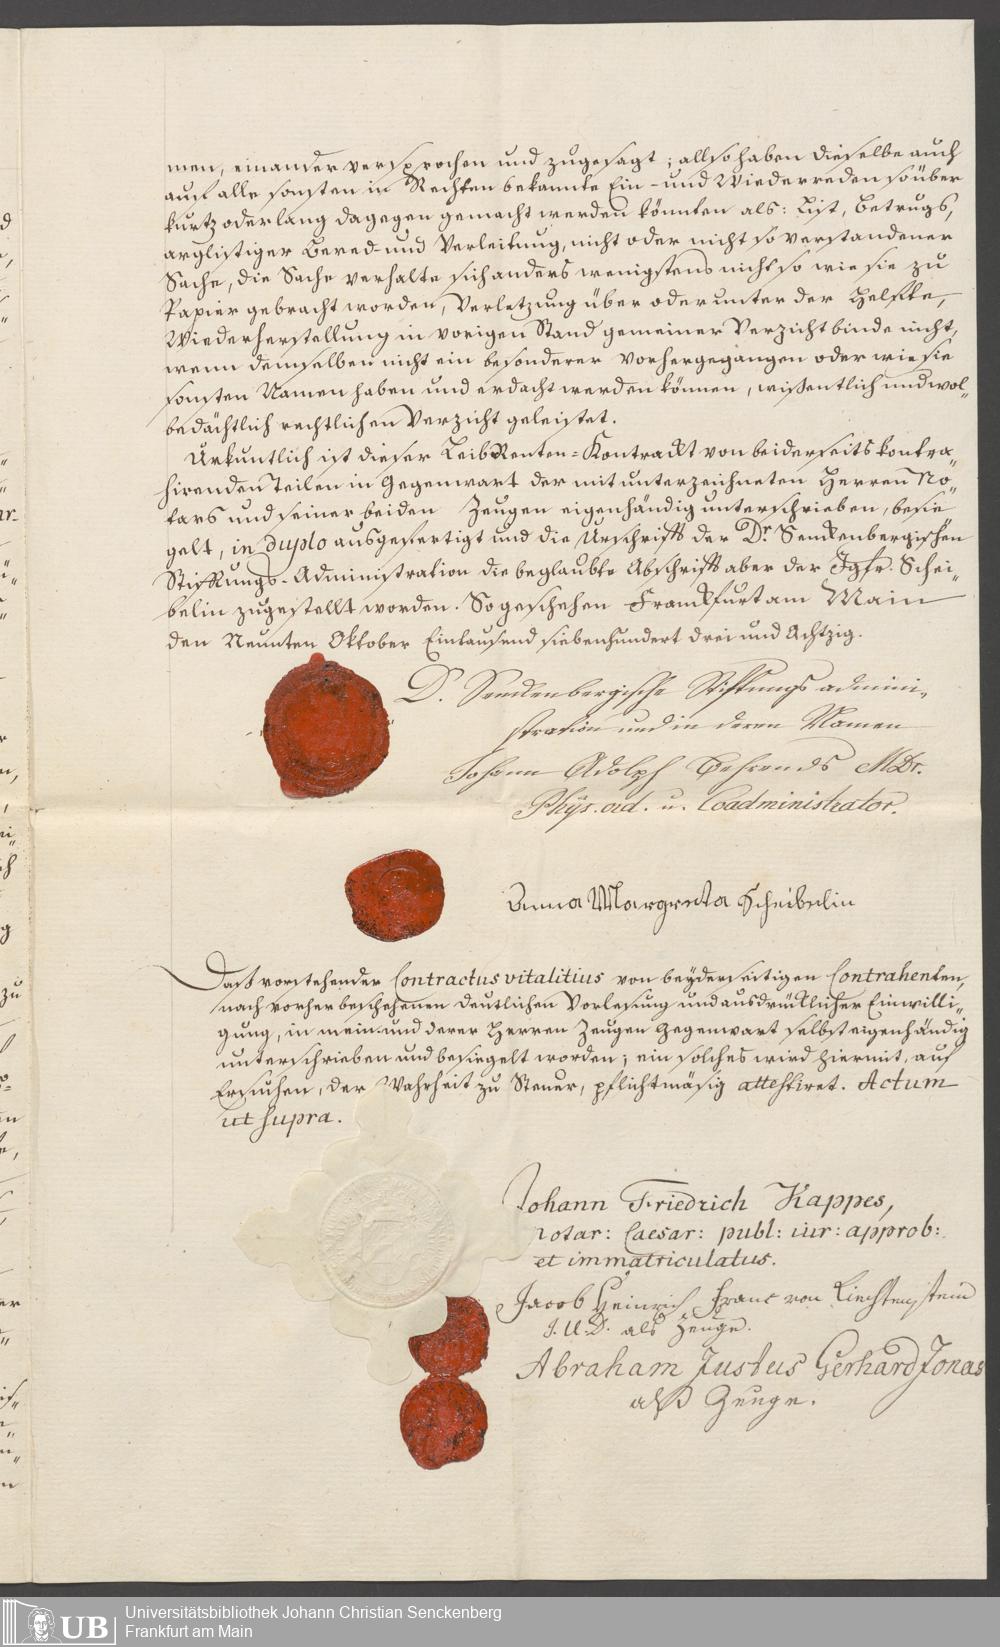 men, einander versprochen und zugesagt; allso haben dieselbe auch
auf alle sonsten in Rechten bekannte Ein- und Wiederreden so über
kurtz oder lang dagegen gemacht werden könnten als: List, Betrugs,
arglistiger Bered- und Verleitung, nicht oder nicht so verstandener
Sache, die Sache verhalte sich anders wenigstens nicht so wie sie zu
Papier gebracht worden, Verletzung über oder unter der Helffte,
Wiederherstellung in vorigen Stand gemeiner Verzicht binde nicht,
wenn demselben nicht ein besonderer vorhergegangen oder wie sie
sonsten Namen haben und erdacht werden können, wißentlich und wol„
bedächtlich rechtlichen Verzicht geleistet.
Urkuntlich ist dieser LeibRenten-Kontrackt von beiderseits kontra„
hirenden Teilen in Gegenwart der mitunterzeichneten Herren No„
tars und seiner beiden Zeugen eigenhändig unterschrieben, besie
gelt, in duplo ausgefertigt und die Urschrifft der Dr. Senckenbergischen
Stifftungs-Administration die beglaubte Abschrifft aber der Jgfr. Schei„
belin zugestellt worden. So geschehen Franckfurt am Main
den Neunten Oktober Eintausend siebenhundert drei und Achtzig.
D. Senckenbergische Stiftungs admini„
stration und in deren Namen
Johann Adolph Behrends MDr.
Phys. ord. u. Coadministrator.
Anna Margreta Scheibelin
Daß vorstehender Contractus vitalitius von beyderseitigen Contrahenten,
nach vorher beschehenen deutlichen Vorlesung und ausdrücklicher Einwilli„
gung, in mein- und derer Herren Zeugen Gegenwart selbst eigenhändig
unterschrieben und besiegelt worden; ein solches wird hiermit, auf
Ersuchen, der Wahrheit zu Steuer, pflichtmäsig attestiret. Actum
ut supra.
Johann Friedrich Kappes,
Notar: Caesar: publ: iur: approb:
et immatriculatus.
Jacob Heinrich Franc von Liechtenstein
J.U.D. als Zeuge.
Abraham Justus Gerhard Jonas
alß Zeuge.
UB Universitätsbibliothek Johann Christian Senckenberg
Frankfurt am Main